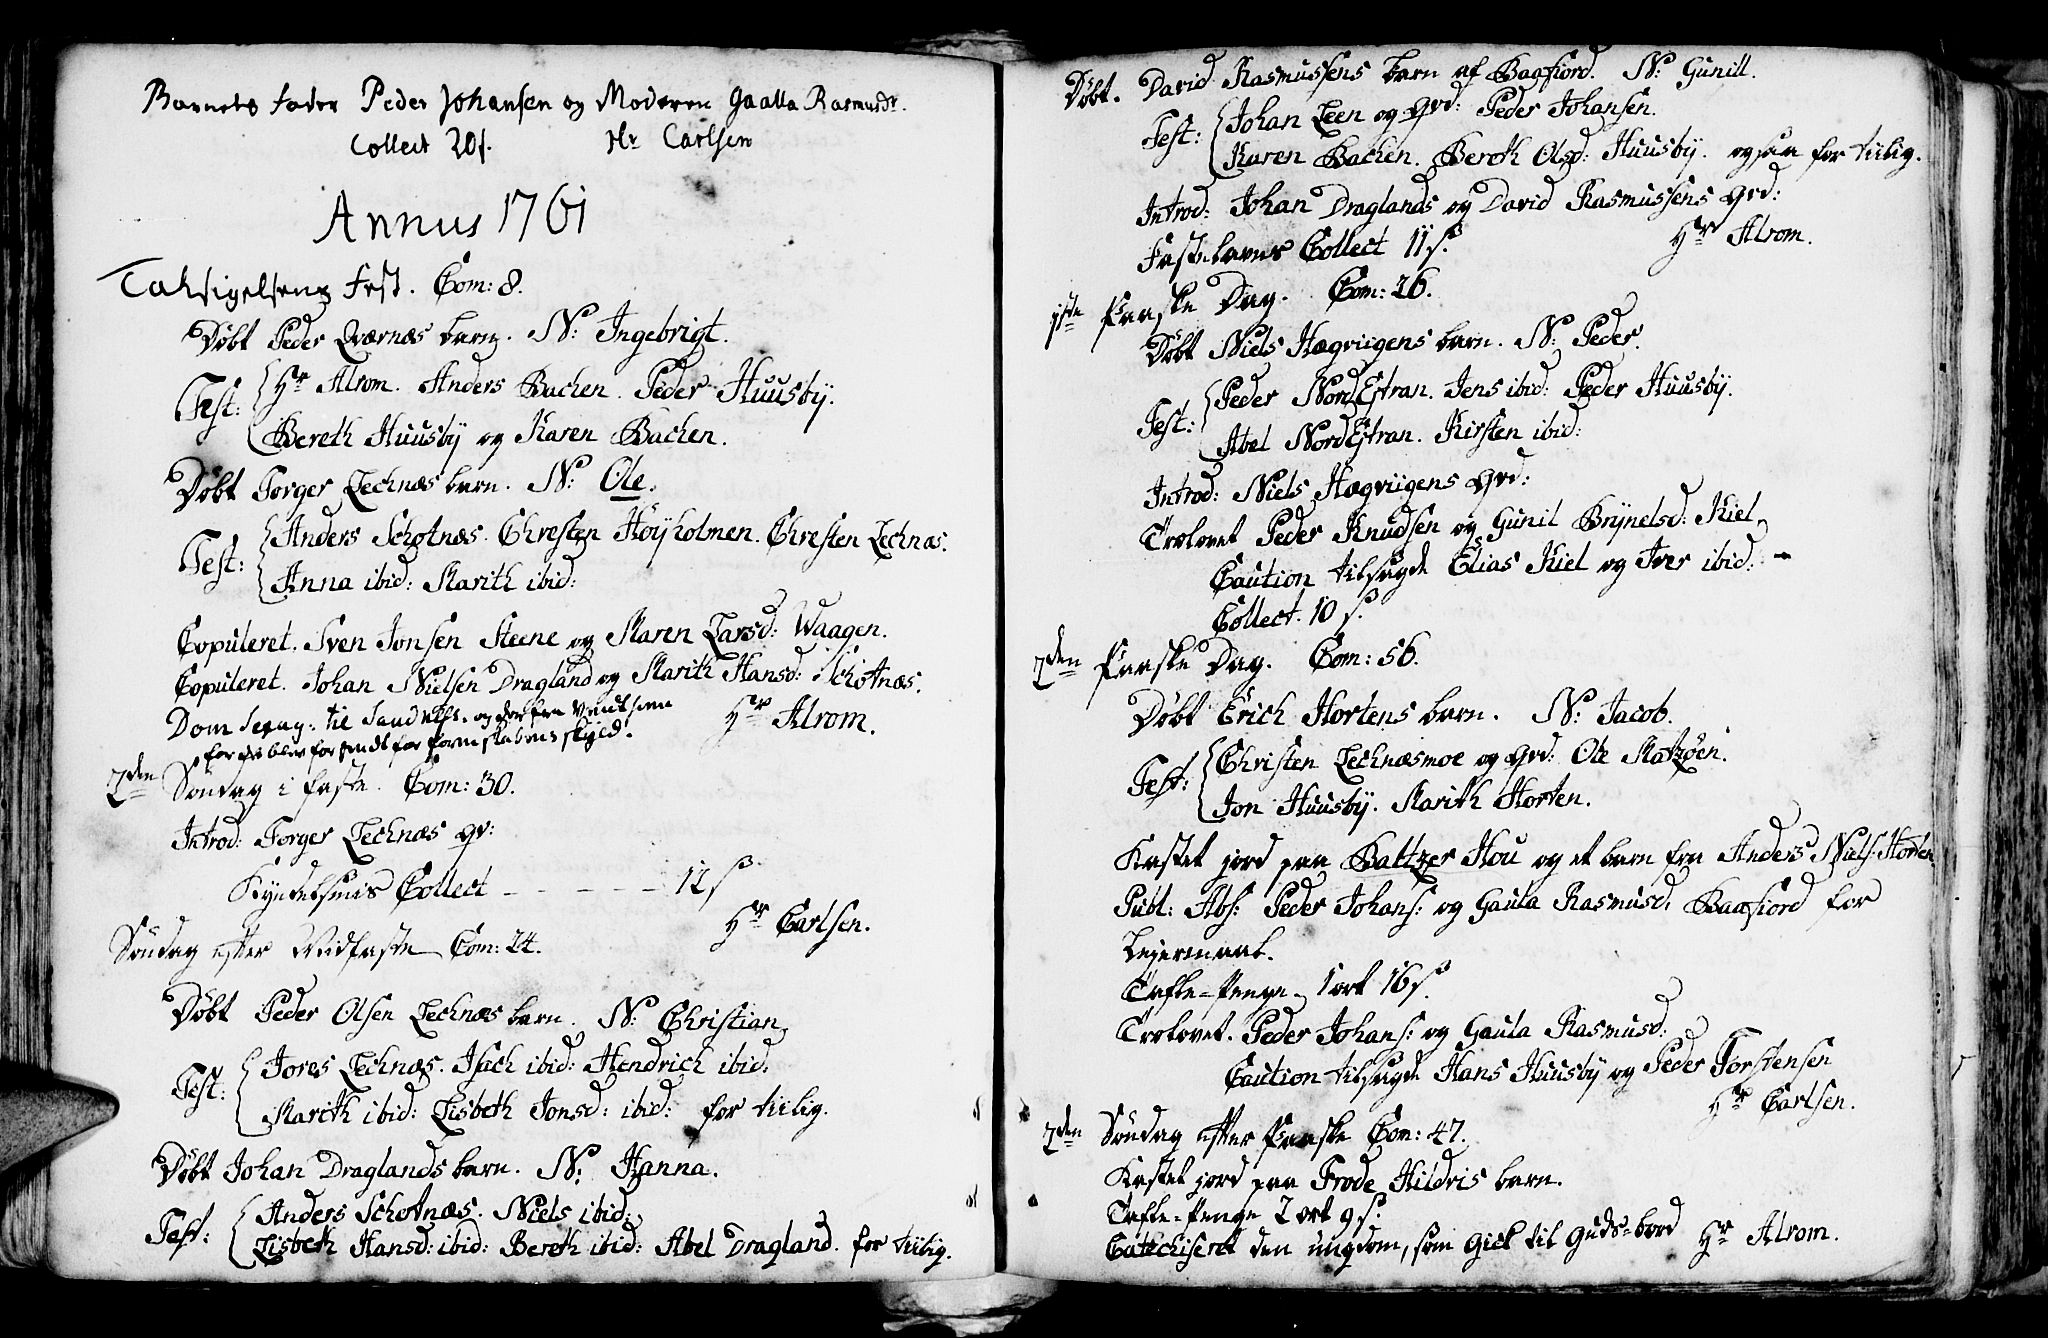 Barnets Fader Peder Johansen og Moderen Gaalla Rasmusdr.
Collect 20 s. Hr Carlsen
Annus 1761
Taksigelsens Fest. Com: 8.
Døbt Peder Qværnæs barn. N: Ingebrigt.
Test: Hr Alrom. Anders Bachen. Peder Huusby.
Bereth Huusby og Karen Bachen.
Døbt Torger Lechnæs barn. N: Ole.
Test: Anders Schotnæs. Christen Høyholmen. Christen Lechnæs.
Anna ibid: Marith ibid:
Copuleret. Sven Jonsen Steene og Maren Larsd: Waagen.
Copuleret. Johan Nielsen Dragland og Marith Hansd: Schotnæs.
Dom Sexag: til og derfra
Hr Alrom.
2den Søndag i faste. Com: 30.
Introd: Torger Lechnæs qv:
Kyndelsmis Collect - - - - - 12 s
Hr Carlsen.
Søndag efter Midfaste Com: 24.
Døbt Peder Olsen Lechnæs barn. N: Christian
Test: Jores Lechnæs. Isach ibid: Hendrich ibid:
Marith ibid: Lisbeth Jonsd: ibid: for tiilig.
Døbt Johan Draglands barn. N: Hanna.
Test: Anders Schotnæs. Niels ibid:
Lisbeth Hansd: ibid: Bereth ibid: Abel Dragland. for tiilig.
Døbt. David Rasmussens barn af Bagfiord. N: Gunill.
Test: Johan Leen og qvd: Peder Johansen.
Karen Bachen. Bereth Olsd: Huusby. ogsaa for tiilig.
Introd: Johan Draglands og David Rasmussens qvd:
Fastelavns Collect 11 s. Hr Alrom.
1ste Paaske Dag. Com: 26.
Døbt Niels Hægviigens barn. N: Peder.
Test: Peder NordEstran. Jens ibid: Peder Huusby.
Abel NordEstran. Kirsten ibid:
Introd: Niels Hægviigens qvd:
Trolovet Peder Knudsen og Gunil Brynelsd: Kiel
Caution tilsagde Elias Kiel og Iver ibid:
Collect. 10 s.
2den Paaske Dag. Com: 56.
Døbt Erich Hortens barn. N: Jacob.
Test: Christen Lechnæsmoe og qvd: Ole Matzøen.
Jon Huusby. Marith Horten.
Kastet jord paa Baltzer Hou og et barn fra Anders Niels: Horten
Publ: Abs: Peder Johans: og Gaula Rasmusd: Bagfiord for
Lejermaal.
Tafle-Penge 1 ort 16 s.
Trolovet. Peder Johans: og Gaula Rasmusd:
Caution tilsagde Hans Huusby og Peder Torstensen
Hr Carlsen.
2den Søndag efter Paaske Com: 47.
Kastet jord paa Frode Hildris barn.
Tafle-Penge 2 ort 9 s.
Catechiseret den ungdom, som Gick til Guds-bord Hr Alrom.